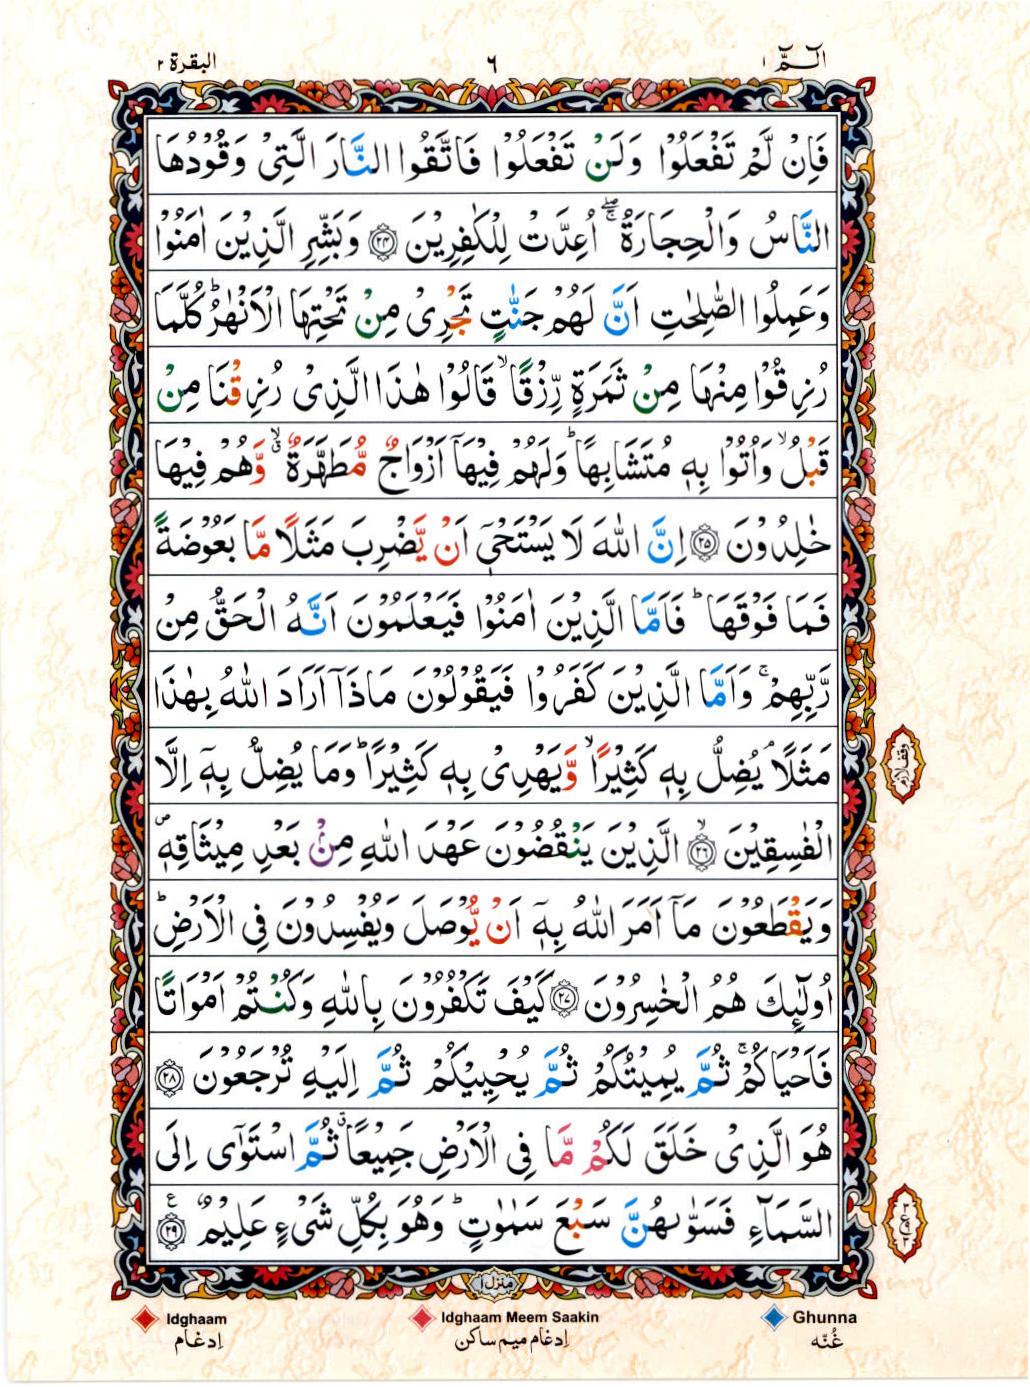 الٓمّٓ ۱
٦
البقرة ۲
فَاِنْ لَّمْ تَفْعَلُوْا وَلَنْ تَفْعَلُوْا فَاتَّقُوا النَّارَ الَّتِیْ وَقُوْدُهَا
النَّاسُ وَالْحِجَارَةُ ۖۚ اُعِدَّتْ لِلْكٰفِرِیْنَ ﴿۲۴﴾ وَبَشِّرِ الَّذِیْنَ اٰمَنُوْا
وَعَمِلُوا الصّٰلِحٰتِ اَنَّ لَهُمْ جَنّٰتٍ تَجْرِیْ مِنْ تَحْتِهَا الْاَنْهٰرُ ؕ كُلَّمَا
رُزِقُوْا مِنْهَا مِنْ ثَمَرَةٍ رِّزْقًا ۙ قَالُوْا هٰذَا الَّذِیْ رُزِقْنَا مِنْ
قَبْلُ ۙ وَاُتُوْا بِهٖ مُتَشَابِهًا ؕ وَلَهُمْ فِیْهَاۤ اَزْوَاجٌ مُّطَهَّرَةٌ ۙۗ وَّهُمْ فِیْهَا
خٰلِدُوْنَ ﴿۲۵﴾ اِنَّ اللّٰهَ لَا یَسْتَحْیٖۤ اَنْ یَّضْرِبَ مَثَلًا مَّا بَعُوْضَةً
فَمَا فَوْقَهَا ؕ فَاَمَّا الَّذِیْنَ اٰمَنُوْا فَیَعْلَمُوْنَ اَنَّهُ الْحَقُّ مِنْ
رَّبِّهِمْ ۚ وَاَمَّا الَّذِیْنَ كَفَرُوْا فَیَقُوْلُوْنَ مَاذَاۤ اَرَادَ اللّٰهُ بِهٰذَا
مَثَلًا ۘ یُضِلُّ بِهٖ كَثِیْرًا ۙ وَّیَهْدِیْ بِهٖ كَثِیْرًا ؕ وَمَا یُضِلُّ بِهٖۤ اِلَّا
وقف لازم
الْفٰسِقِیْنَ ﴿۲۶﴾ۙ الَّذِیْنَ یَنْقُضُوْنَ عَهْدَ اللّٰهِ مِنْۢ بَعْدِ مِیْثَاقِهٖ ۪
وَیَقْطَعُوْنَ مَاۤ اَمَرَ اللّٰهُ بِهٖۤ اَنْ یُّوْصَلَ وَیُفْسِدُوْنَ فِی الْاَرْضِ ؕ
اُولٰٓئِكَ هُمُ الْخٰسِرُوْنَ ﴿۲۷﴾ كَیْفَ تَكْفُرُوْنَ بِاللّٰهِ وَكُنْتُمْ اَمْوَاتًا
فَاَحْیَاكُمْ ۚ ثُمَّ یُمِیْتُكُمْ ثُمَّ یُحْیِیْكُمْ ثُمَّ اِلَیْهِ تُرْجَعُوْنَ ﴿۲۸﴾
هُوَ الَّذِیْ خَلَقَ لَكُمْ مَّا فِی الْاَرْضِ جَمِیْعًا ۗ ثُمَّ اسْتَوٰۤی اِلَی
السَّمَآءِ فَسَوّٰىهُنَّ سَبْعَ سَمٰوٰتٍ ؕ وَهُوَ بِكُلِّ شَیْءٍ عَلِیْمٌ ﴿۲۹﴾ ع
منزل ۱
Idghaam
اِدغام
Idghaam Meem Saakin
اِدغام میم ساکن
Ghunna
غُنّه